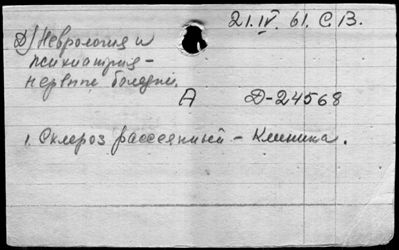 21.IV. 61. С.В.
Д) Неврология и
психиатрия –
нервные болезни.
А Д-24568
1. Склероз рассеянный – клиника.